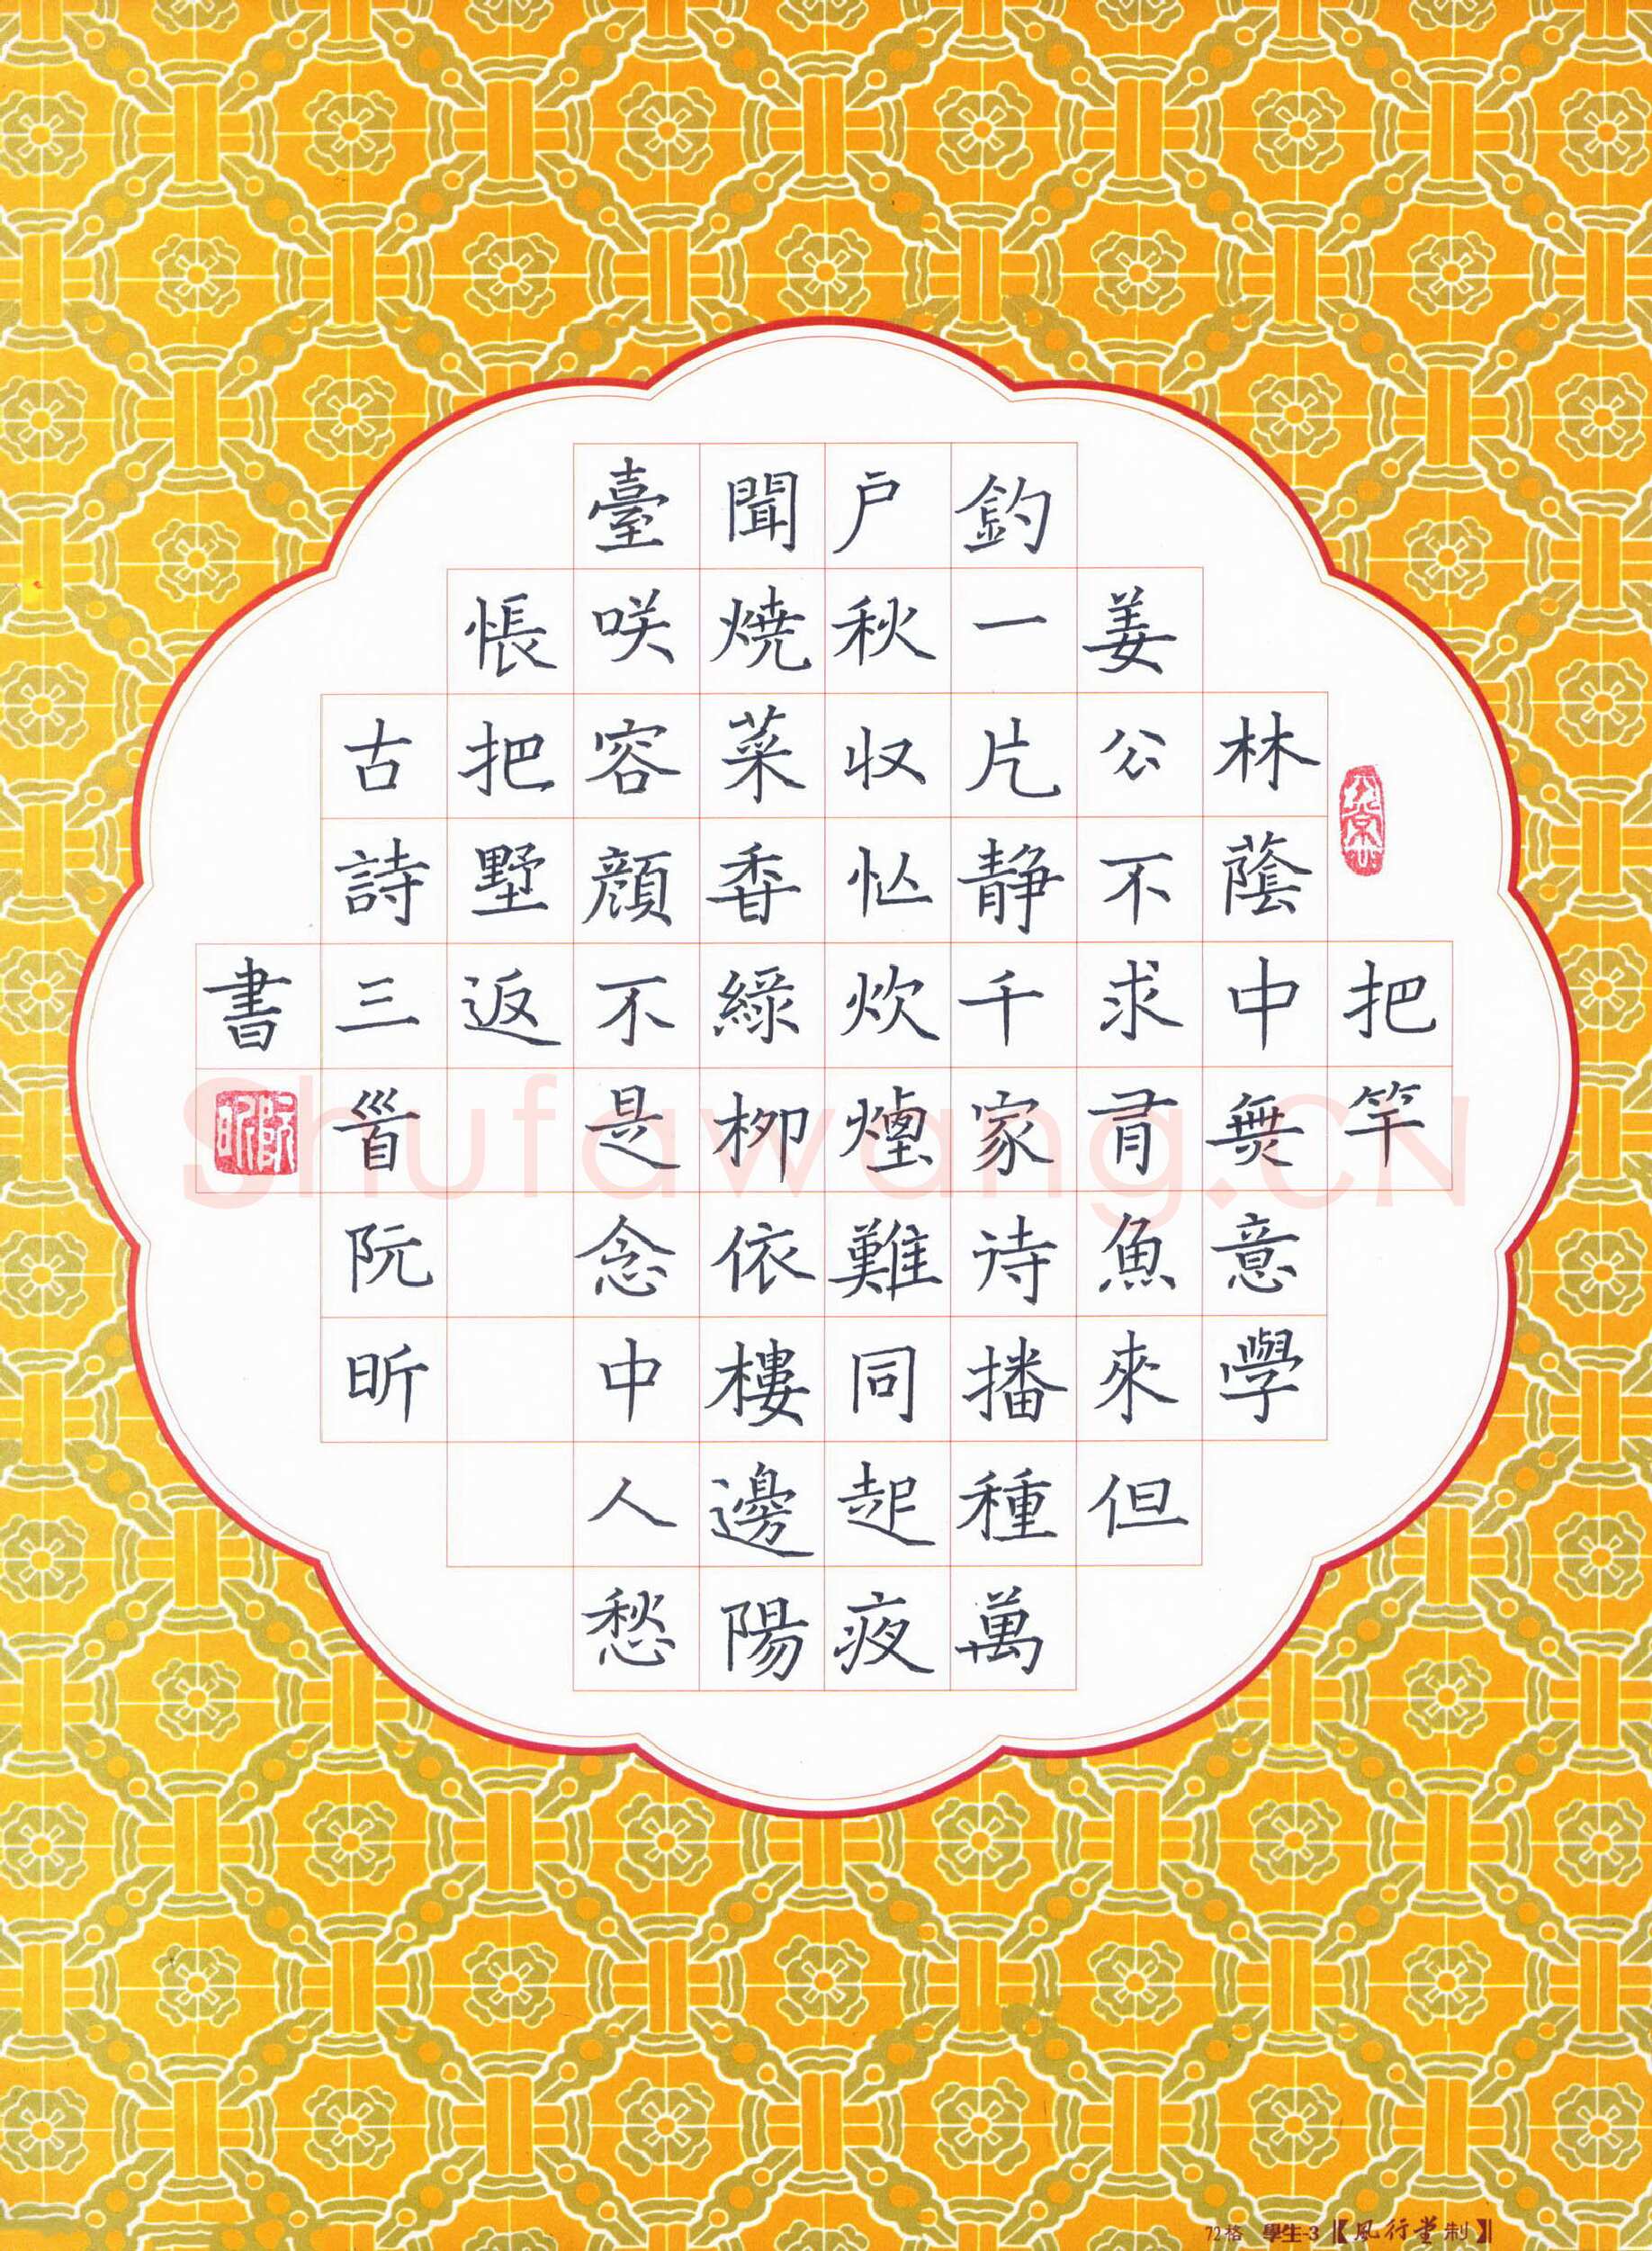 把竿
林蔭中無意學
姜公不求有魚來但
釣一片静千家待播種萬
户秋収忙炊煙難同起夜
聞焼菜香綠柳依樓邊陽
臺咲容顔不是念中人愁
悵把墅返
古詩三首阮昕
書
阮昕
Shufawang.CN
72格 學生-3【風行堂制】